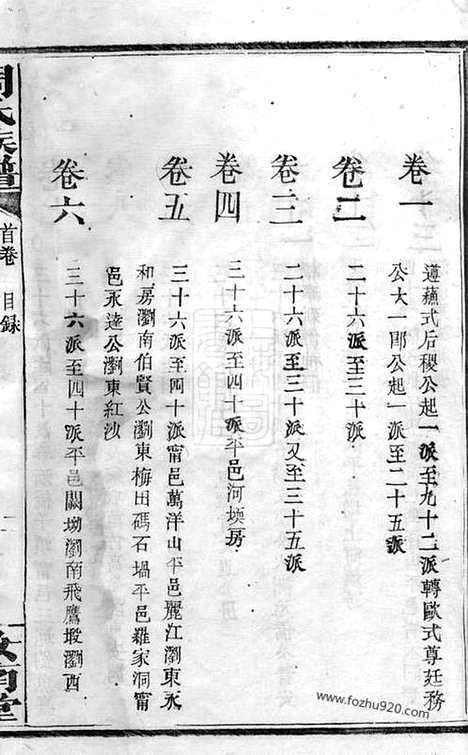 卷一
遵蘓式后稷公起一派至九十二派轉歐式尊廷務
公大一郎公起一派至二十五派
卷二
二十六派至三十派
卷三
二十六派至三十派又至三十五派
卷四
三十六派至四十派平邑河㙩房
卷五
三十六派至四十派甯邑萬洋山平邑麗江瀏東永
和房瀏南伯賢公瀏東梅田碼石塌平邑羅家洞甯
邑永達公瀏東紅沙
卷六
三十六派至四十派平邑關坳瀏南飛鷹塅瀏西
周氏族譜
首卷 目錄
www.fozhu920.com